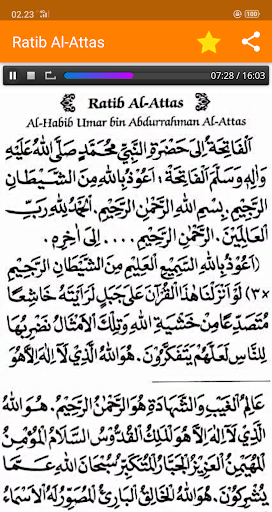 02.23
Ratib Al-Attas
07:28 / 16:03
Ratib Al-Attas
Al-Habib Umar bin Abdurrahman Al-Attas
اَلْفَاتِحَةُ اِلَى حَضْرَةِ النَّبِيِّ مُحَمَّدٍ صَلَّى اللهُ عَلَيْهِ
وَاٰلِهِ وَسَلَّمَ اَلْفَاتِحَةُ : اَعُوْذُ بِاللهِ مِنَ الشَّيْطَانِ
الرَّجِيْمِ. بِسْمِ اللهِ الرَّحْمٰنِ الرَّحِيْمِ. اَلْحَمْدُ لِلّٰهِ رَبِّ
الْعَالَمِيْنَ. الرَّحْمٰنِ الرَّحِيْمِ .... اِلَى اٰخِرِهِ.
(اَعُوْذُ بِاللهِ السَّمِيْعِ الْعَلِيْمِ مِنَ الشَّيْطَانِ الرَّجِيْمِ
×٣) لَوْ اَنْزَلْنَا هٰذَا الْقُرْاٰنَ عَلَى جَبَلٍ لَرَاَيْتَهُ خَاشِعًا
مُتَصَدِّعًا مِنْ خَشْيَةِ اللهِ وَتِلْكَ الْاَمْثَالُ نَضْرِبُهَا
لِلنَّاسِ لَعَلَّهُمْ يَتَفَكَّرُوْنَ. هُوَ اللهُ الَّذِيْ لَا اِلٰهَ اِلَّا هُوَ
عَالِمُ الْغَيْبِ وَالشَّهَادَةِ هُوَ الرَّحْمٰنُ الرَّحِيْمُ. هُوَ اللهُ
الَّذِيْ لَا اِلٰهَ اِلَّا هُوَ الْمَلِكُ الْقُدُّوْسُ السَّلَامُ الْمُؤْمِنُ
الْمُهَيْمِنُ الْعَزِيْزُ الْجَبَّارُ الْمُتَكَبِّرُ سُبْحَانَ اللهِ عَمَّا
يُشْرِكُوْنَ. هُوَ اللهُ الْخَالِقُ الْبَارِئُ الْمُصَوِّرُ لَهُ الْاَسْمَاءُ